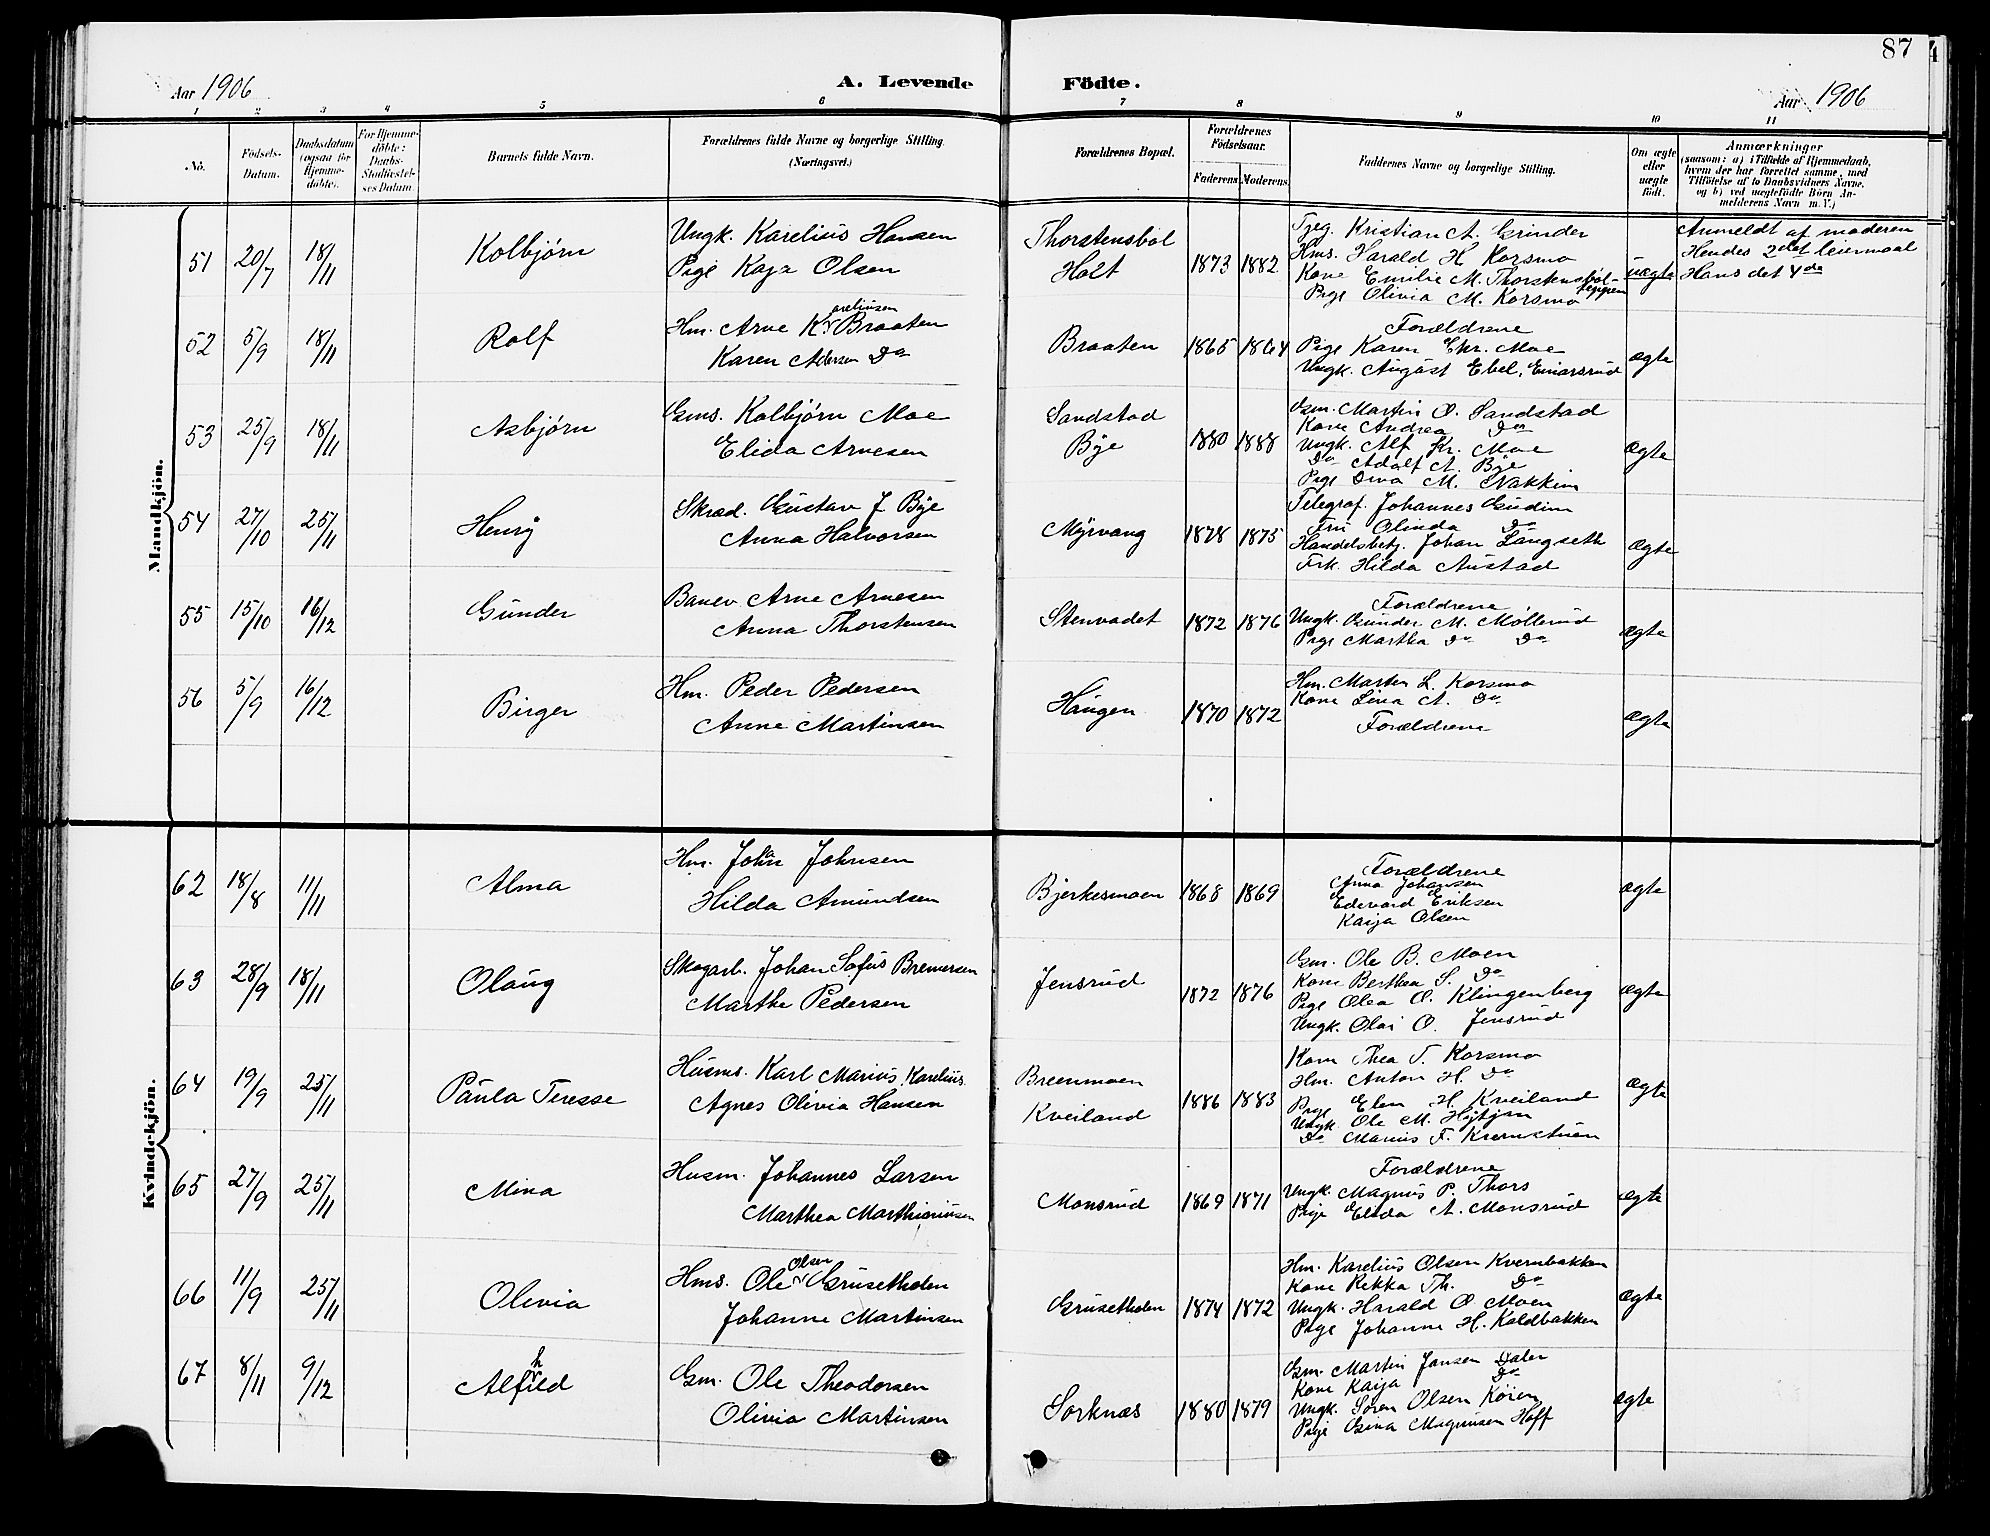 87
Aar 1906 A. Levende Födte. Aar 1906
1 2 3 4 5 6 7 8 9 10 11
No. Födsels-Datum. Daabsdatum (ogsaa for Hjemme-döbte). For Hjemme-döbte: Daabs-Stadfæstel-ses Datum. Barnets fulde Navn. Forældrenes fulde Navne og borgerlige Stilling. (Næringsvei.) Forældrenes Bopæl. Forældrenes Födselsaar. Faderens Moderens Faddernes Navne og borgerlige Stilling. Om ægte eller uægte födt. Anmærkninger (saasom: a) i Tilfælde af Hjemmedaab, hvem der har forrettet samme, med Tilföielse af to Daabsvidners Navne, og b) ved uægtefödte Börn An-melderens Navn m. V.)
Mandkjön.
51 20/7 18/11 Kolbjørn
Ungk. Karelius Hansen
Pige Kaja Olsen
Thorstensbøl
Holt
1873 1882
Kristian A. Grinder
Hms. Harald H Korsmo
Kone Emilie M. Thorstensbøl-
Pige Olivia M. Korsmo
uægte
Anmeldt af moderen
Hendes 2det leiermaal
Hans det 4de
52 5/9 18/11 Rolf
Hm. Arne Kareliusen Braaten
Karen Andersen Do
Braaten
1865 1864
Forældrene
Pige Karen Chr. Moe
Ungk. August Ebel. Einarsrud
ægte
53 25/9 18/11 Asbjørn
Gms. Kolbjørn Moe
Elida Arnesen
Sandstad
Bye
1880 1888
Gm. Martin O. Sandstad
Kone Andrea Do
Ungk. Alf Kr. Moe
Do Adolf A. Bye
Pige Dina M. Nakkim
ægte
54 27/10 25/11 Henry
Skræd. Gustav J Bye
Anna Halvorsen
Myrvang
1878 1875
Telegraf. Johannes Gudim
Fru Olinda Do
Handelsbetj. Johan Langseth
Frk. Hilda Austad
ægte
55 15/10 16/12 Gunder
Banev. Arne Arnesen
Anna Thorstensen
Stenvadet
1872 1876
Forældrene
Ungk. Gunder M. Møllerud
Pige Martha Do Do
ægte
56 5/9 16/12 Birger
Hm. Peder Pedersen
Anne Martinsen
Haugen
1870 1872
Hm. Marten L. Korsmo
Kone Lina A. Do
Forældrene
ægte
Kvindekjön.
62 18/8 11/11 Alma
Hm. Johan Johnsen
Hilda Amundsen
Bjerkesmoen
1868 1869
Forældrene
Anna Johansen
Edevard Eriksen
Kaija Olsen
ægte
63 28/9 18/11 Olaug
Skogarb. Johan Sofus Bremersen
Marthe Pedersen
Jensrud
1872 1876
Gm. Ole B. Moen
Kone Berthea S. Do
Pige Olea O. Klingenberg
Ungk. Olai O. Jensrud
ægte
64 19/9 25/11 Paula Teresse
Husms. Karl Marius Karelius.
Agnes Olivia Hansen
Breenmoen
Kveiland
1886 1883
Kone Thea T. Korsmo
Hm. Anton H. Do
Pige Elen H. Kveiland
Ungk. Ole M.
Do Marius F.
ægte
65 27/9 25/11 Mina
Husm. Johannes Larsen
Marthea Marthiniusen
Monsrud
1869 1871
Forældrene
Ungk. Magnus P. Thors
Pige Elida A. Monsrud
ægte
66 11/9 25/11 Olivia
Hms. Ole Olsen Grusetholen
Johanne Martinsen
Grusetholen
1874 1872
Hm. Karelius Olsen Kvernbakken
Kone Rikka Th. Do
Ungk. Harald O. Moen
Pige Johanne H. Koldbakken
ægte
67 8/11 9/12 Alfhild
Gm. Ole Theodorsen
Olivia Martinsen
Sorknæs
1880 1879
Gm. Martin Jansen Daler
Kone Kaija Do
Ungk. Søren Olsen Køien
Pige Gina Magnusen Hoff
ægte